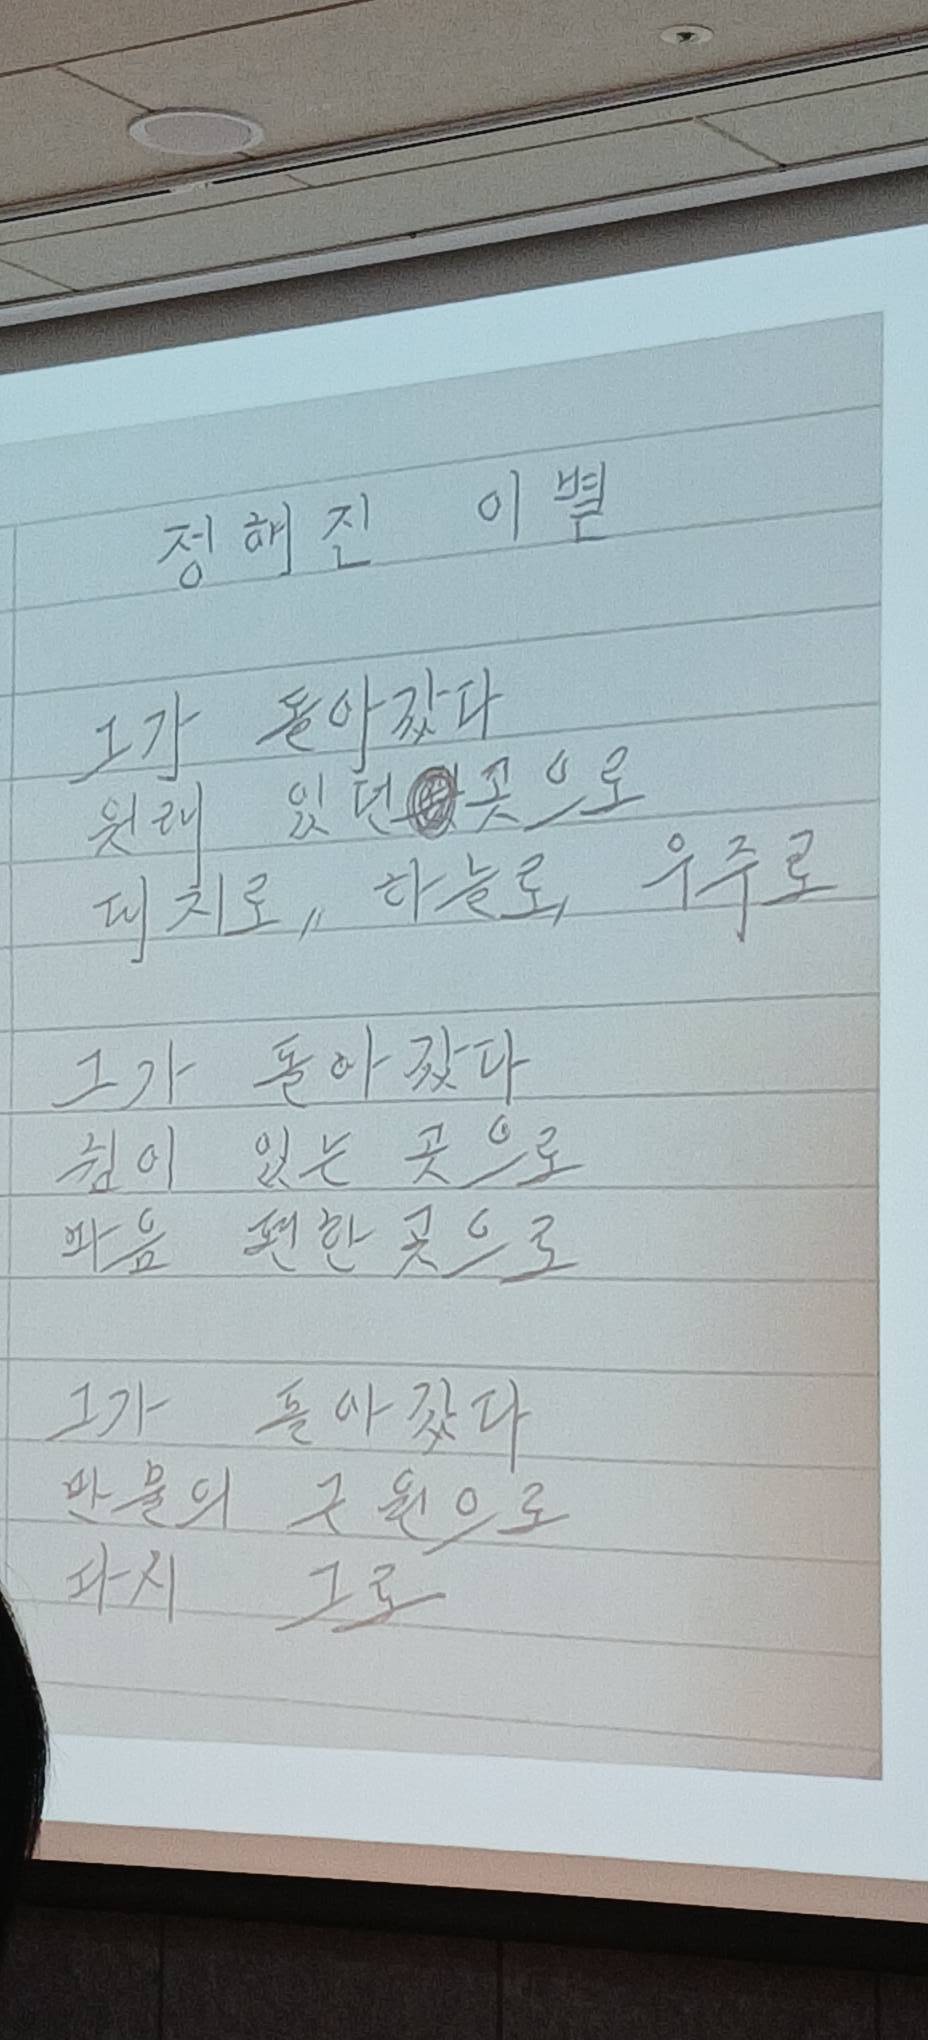 정해진 이별
그가 돌아갔다
원래 있던 곳으로
대지로, 하늘로, 우주로
그가 돌아갔다
쉼이 있는 곳으로
마음 편한 곳으로
그가 돌아갔다
만물의 근원으로
다시 그로